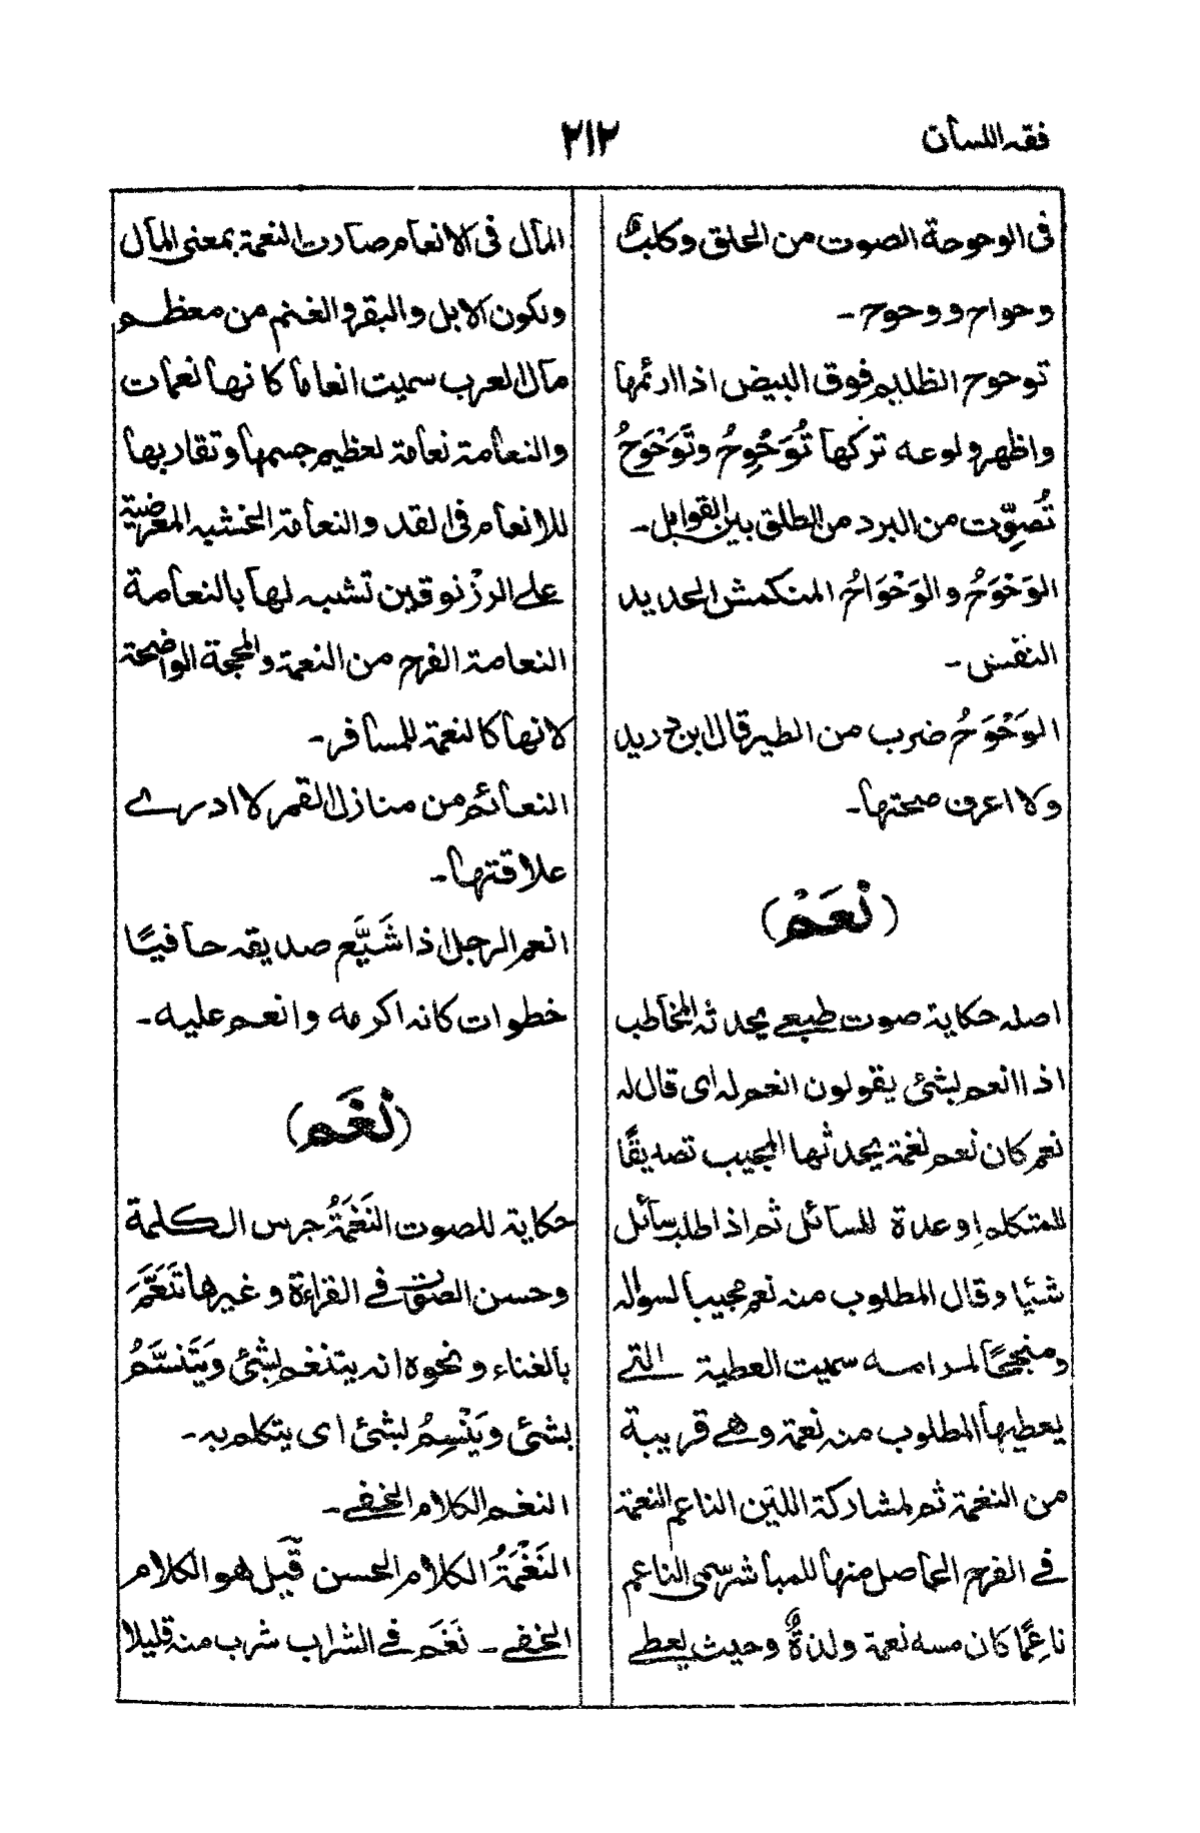 فقه اللسان
٢١٢
فى الوحوحة الصوت من الحلق وكلب
وحواح ووحوح۔
توحوح الظليم فوق البيض اذا ارئمها
واظهر ولوعه تركها تُوَحْوِحُ وتَوَحْوَحُ
تُصوِّت من البرد من الطلق بين القوابل۔
الوَحْوَحُ والوَحْوَاحُ المنكمش الحديد
النفس۔
الوَحْوَحُ ضرب من الطير قال ابن دريد
ولا اعرف صحتها۔
(نَعَمْ)
اصله حكاية صوت طبعي يحدثه المخاطب
اذا انعم لبشئ يقولون انعم له اى قال له
نعم كان نعم نغمة يحدثها المجيب تصديقًا
للمتكلم او عدة للسائل ثم اذا طلب سائل
شئيا وقال المطلوب منه نعم مجيبا لسواله
ومنجحًا لمرامه سميت العطية التي
يعطيها المطلوب منه نعمة وهي قريبة
من النغمة ثم لمشاركة اللين الناعم النعمة
في الفرح الحاصل منها للمباشر سمى الناعم
ناعِمًا كان مسه نعمة ولذةٌ وحيث يعطي
المال فى الانعام صارت النعمة بمعنى المال
ولكون الابل والبقر والغنم من معظم
مال العرب سميت انعاما كانها نعمات
والنعامة نعامة لعظيم جسمها وتقاربها
للانعام فى القد والنعامة الخشبه المعرضية
علي الرزنوقين تشبه لها بالنعامة
النعامة الفرح من النعمة والمحجة الواضحة
لانها كالنعمة للمسافر۔
النعائم من منازل القمر لا ادرے
علاقتها۔
انعم الرجل اذا شَيَّع صديقه حافيًا
خطوات كانه اكرمه وانعم عليه۔
(نَغَم)
حكاية للصوت النَغَمَةُ جرس الكلمة
وحسن الصوت في القراءة وغيرها تَنَغَّمَ
بالغناء ونحوه انه يتنغم بشئ ويَتَنسَّمُ
بشئ ويَنْسِمُ لبشئ اى يتكلم به۔
النغم الكلام الخفي۔
النَغْمَةُ الكلام الحسن قيل هو الكلام
الخفي۔ نَغَم في الشراب شرب منه قليلا